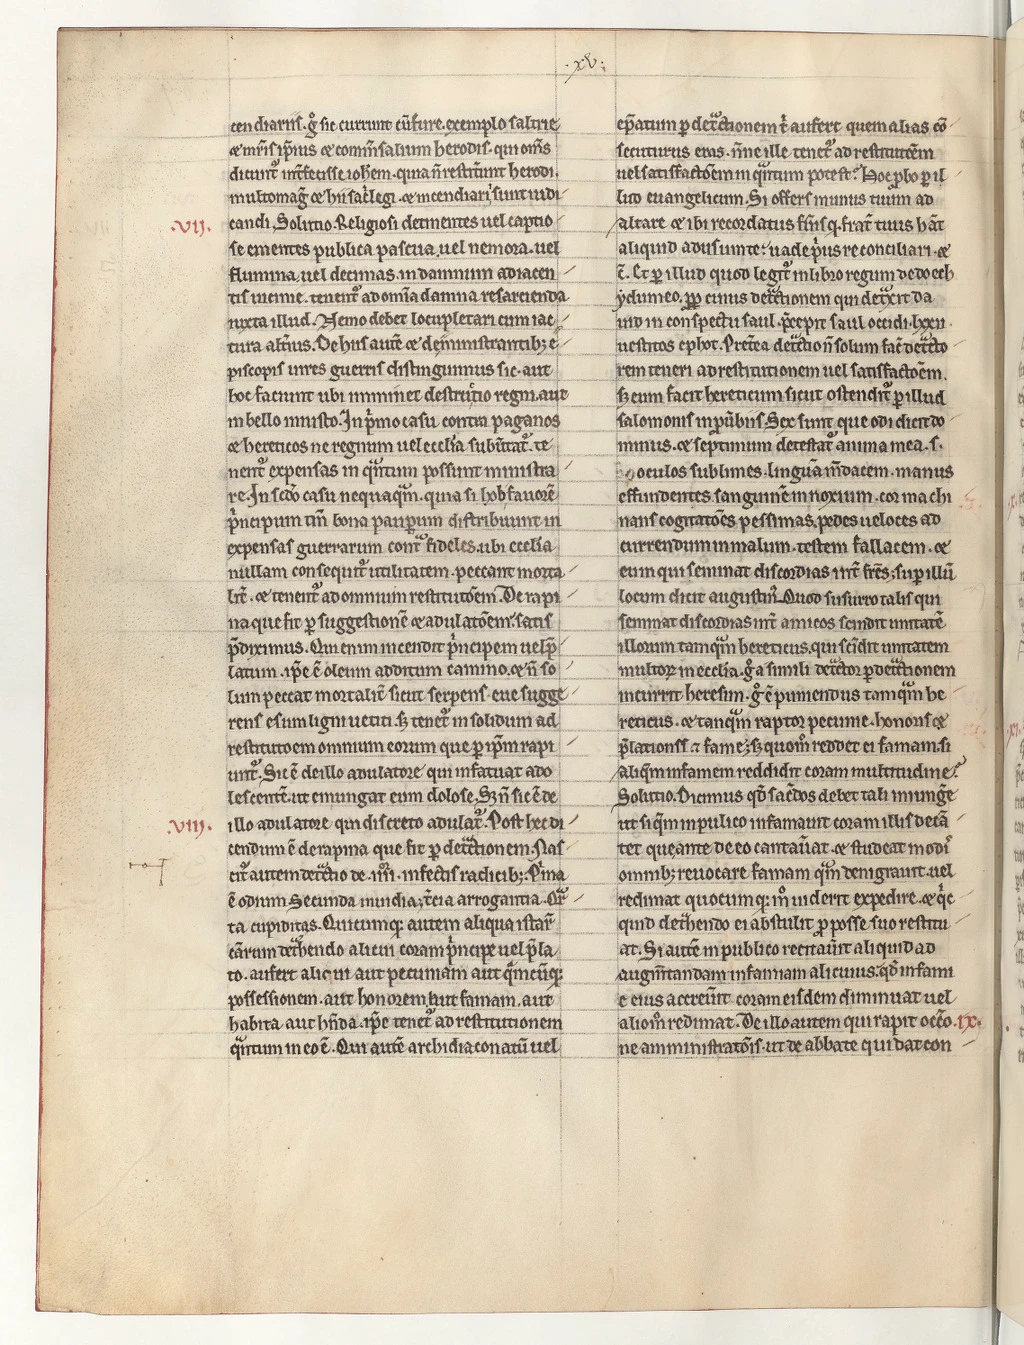 .xv.
cendiariis. gͦ sic currunt cū fure. exemplo saltric
⁊ mr̄is ip̄ius ⁊ comēsalium herodis. qui om̄s
dicunt᷑ int̄fecisse ioh̄em. quia n̄ restit̄unt herodi.
multo mag̃ ⁊ hii sac̓legi. ⁊ incendiarii sunt iudi
.VII.
candi. Solutio. Religiosi detinentes uel captio
se ementes publica pascua. uel nemora. uel
flumina. uel decimas. in damnum adiacen
tis uicinie. tenent᷑ ad om̄ia damna resarcienda
iuxta illud. Nemo debet locupletari cum iac
tura alt̓ius. De hiis autē ⁊ de ministrantibꝫ e
piscopis uires guerris distinguimus sic. aut
hoc faciunt ubi imminet destructio regni. aut
in bello iniusto. In p̓mo casu contra paganos
⁊ hereticos ne regnum uel ecclīa subũtat᷑. te
nent᷑ expensas in qͣntum possunt ministra
re. In scd̄o casu nequaqͣm. quia si ħ ob fauorē
p̓ncipum tm̄ bona paup̄um distribuunt in
expensas guerrarum contͣ fideles. ubi ecclīa
nullam consequit᷑ utilitatem. peccant morta
lit̄. ⁊ tenent᷑ ad omnium restitutōem. De rapi
na que fit ꝑ suggestionē ⁊ adulatōem. satis
p̄diximus. Qui enim incendit p̓ncipem uel p̄
latum. ip̄e ē oleum additum camino. ⁊ n̄ so
lum peccat mortalit̄ sicut serpens eue sugge
rens esum ligni uetiti. sꝫ tenet᷑ in solidum ad
restitutōem omnium eorum que ꝑ ip̄m rapi
unt᷑. Sic ē de illo adulatore qui infatuat ado
lescentē. ut emungat eum dolose. Sꝫ n̄ sic ē de
.VIII.
illo adulatore qui discreto adulat᷑. Post hec di
cendum ē de rapina que fit ꝑ det̃ctionem. Nas
cit᷑ autem det̃ctio de .iiii. infectis radicibꝫ. P̓ma
ē odium. Secunda inuidia. t̄cia arrogantia. Qͣr
ta cupiditas. Quicumqꝫ autem aliqua istar̄
cārum det̃hendo alicui coram p̓ncipe uel p̄la
to. aufert alicui aut pecuniam aut qͣmcūqꝫ
possessionem. aut honorem. aut famam. aut
habita aut hn̄da. ip̄e tenet᷑ ad restitutionem
qͣntum in eo ē. Qui autē archidiaconatū uel
ep̄atum ꝑ det̃ctionem t̄ aufert quem alias cō
secuturus eras. n̄ne ille tenet᷑ ad restitutōem
uel satisfactōem in qͣntum potest? Hoc ꝓbo ꝑ il
lud euangelicum. Si offers munus tuum ad
altare ⁊ ibi recordatus fūis qͥ frat̄ tuus hāt
aliquid adūsum te? uade p̓us reconciliari. ⁊
c̄. Et ꝑ illud quod legit᷑ in libro regum de doech
ydumeo. ꝓp̄ cuius det̃ctionem qui det̃xit da
uid in conspectu saul. p̄cepit saul occidi .lxxii
uestitos ephot. Pret̄ea det̃ctio n̄ solum facit det̃cto
rem teneri ad restitutionem uel satisfactōem.
sꝫ eum facit hereticum sicut ostendit᷑ ꝑ illud
salomonis in ꝓūbiis. Sex sunt que odit dic̄ do
minus. ⁊ septimum detestat᷑ anima mea. s.
oculos sublimes. linguā mēdacem. manus
effundentes sanguinē innoxium. cor machi
nans cogitatōes pessimas. pedes ueloces ad
currendum in malum. testem fallacem. ⁊
eum qui seminat discordias int̄ fr̄es; suꝑ illū
locum dicit augustin᷒. Quod susurro talis qui
seminat discordias int̄ amicos scindit unitatē
illorum tamqͣm hereticus. qui scīdit unitatem
multoꝝ in ecclīa. gͦ a simili det̃ctor ꝑ det̃ctionem
incurrit heresim. gͦ ē puniendus tamqͣm he
reticus. ⁊ tanqͣm raptor pecunie. honoris ⁊
p̄lationis ⁊ fame; sꝫ quom̄ reddet ei famam. si
aliqͣm infamem reddidit coram multitudine?
Solutio. Dicimus qd̓ sac̄dos debet tali iniung̃e
ut si qͣm in puplico infamauit coram illis decā
tet que ante de eo cantau̓at. ⁊ studeat modis
omnibꝫ reuocare famam qͣm denigrauit. uel
redimat quocumqꝫ mͦ uiderit expedire. ⁊ qͥc
quid det̃hendo ei abstulit ꝓ posse suo restitu
at. Si autē in publico recitau̓it aliquid ad
augm̄tandam infamiam alicuius. qd̓ infami
e eius accreu̓it coram eisdem diminuat uel
alio mͦ redimat. De illo autem qui rapit occō .IX.
ne amministratōis. ut de abbate qui dat con